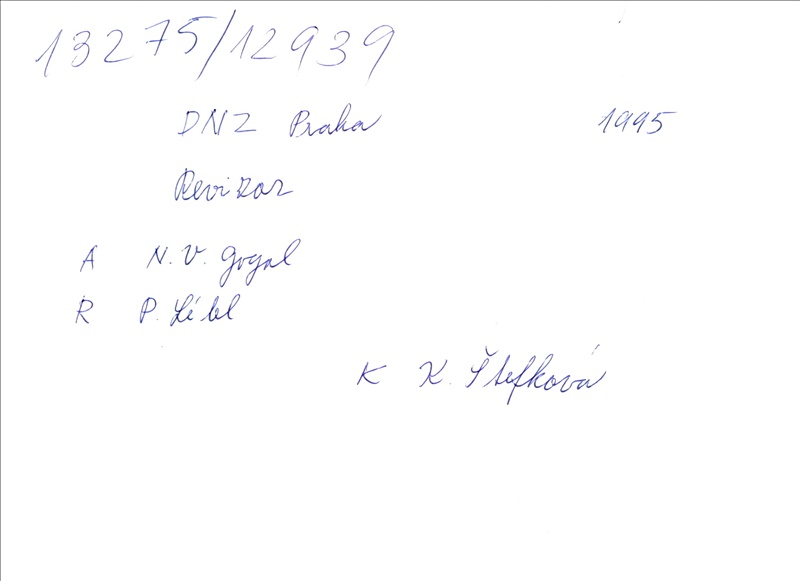 13275/12939
DNZ Praha 1995
Revizor
A N. V. Gogol
R P. Lébl
K K. Štefková